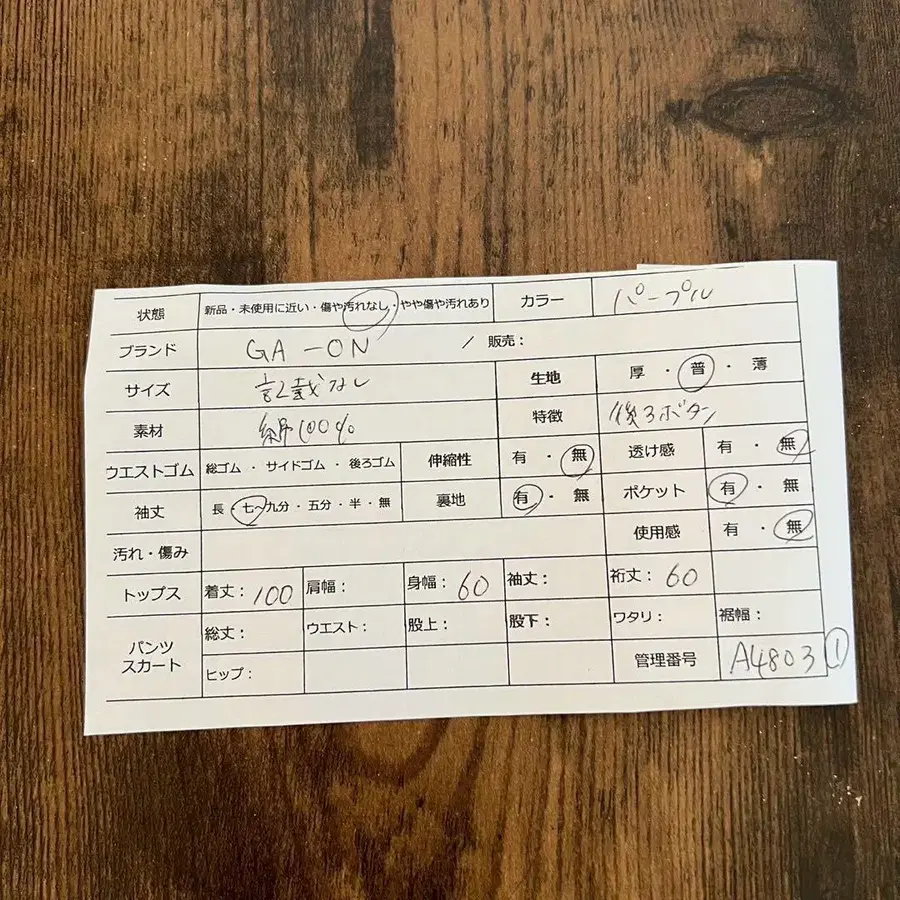 状態 新品・未使用に近い・傷や汚れなし・やや傷や汚れあり カラー パープル
ブランド GA-ON / 販売:
サイズ 記載なし 生地 厚・普・薄
素材 綿100% 特徴 後ろボタン
ウエストゴム 総ゴム・サイドゴム・後ろゴム 伸縮性 有・無 透け感 有・無
袖丈 長・七~九分・五分・半・無 裏地 有・無 ポケット 有・無
汚れ・傷み 使用感 有・無
トップス 着丈:100 肩幅: 身幅:60 袖丈: 裄丈:60
パンツ スカート 総丈: ウエスト: 股上: 股下: ワタリ: 裾幅:
ヒップ: 管理番号 A4803 ①